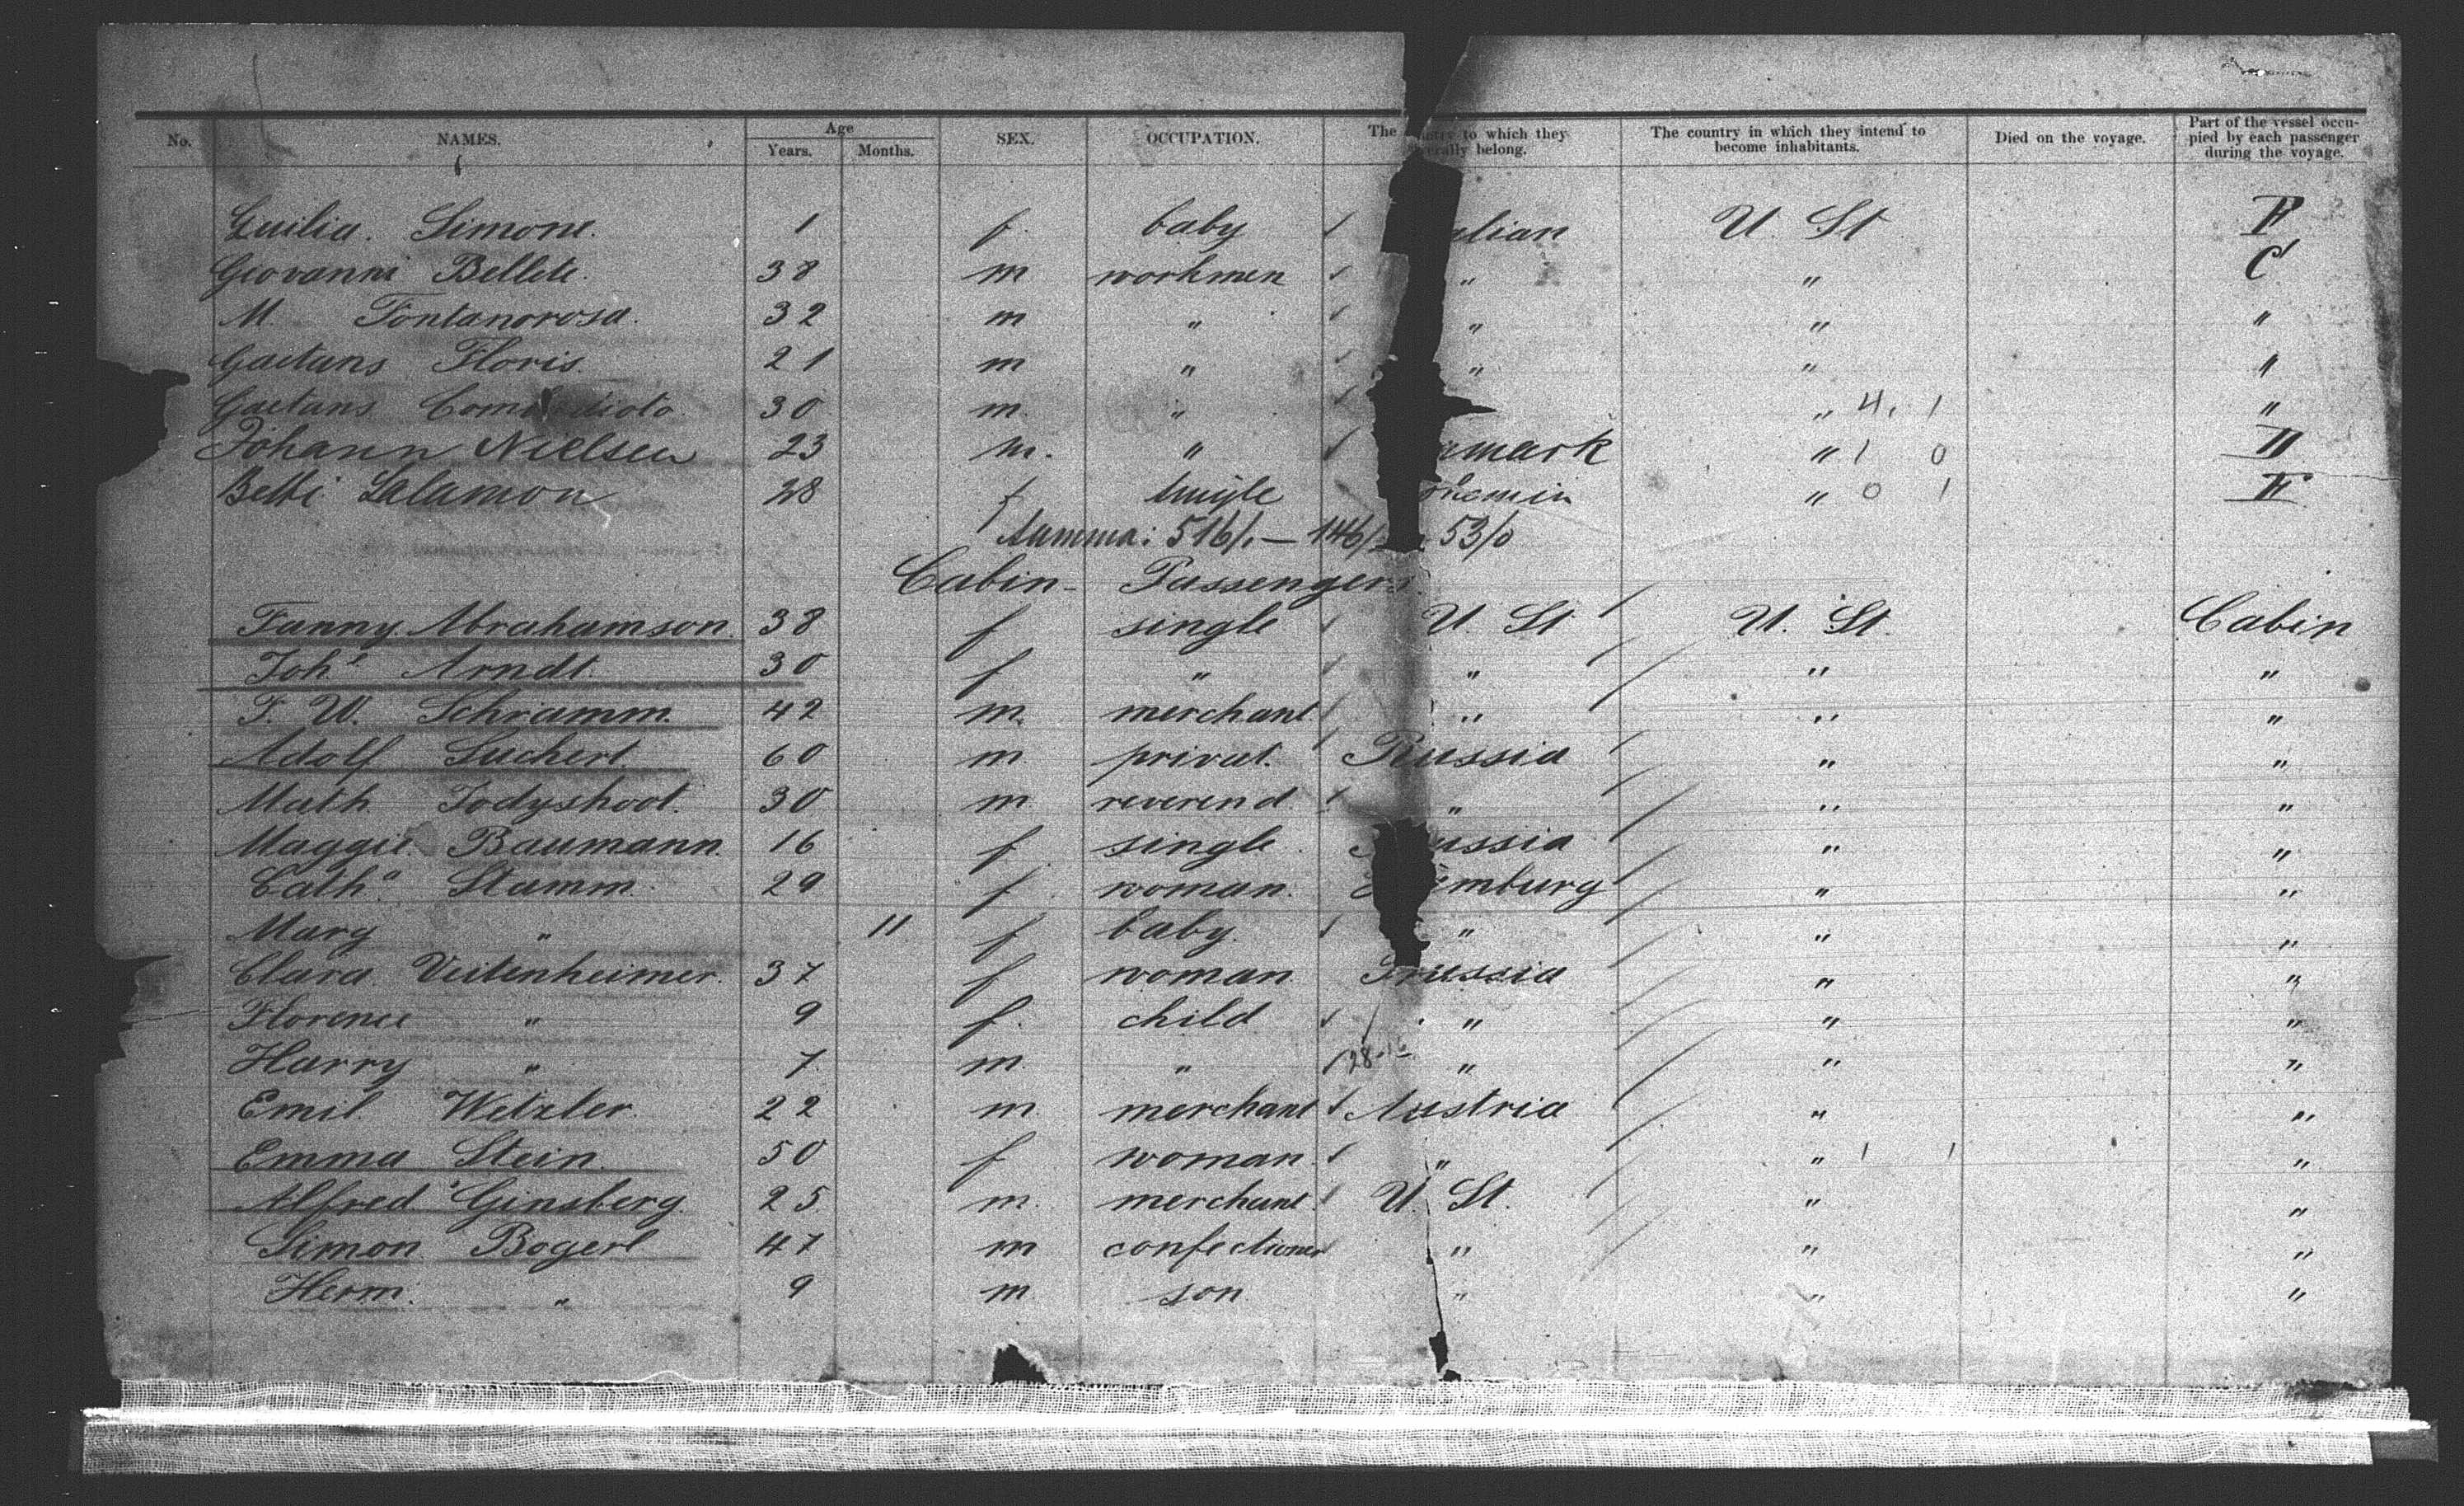 No. NAMES. Age Years. Months. SEX. OCCUPATION. The country to which they severally belong. The country in which they intend to become inhabitants. Died on the voyage. Part of the vessel occupied by each passenger during the voyage.
Guilia. Simone. 1 f. baby alian U. St
Geovanni Bellete. 38 m workmen " " C
M. Fontanorosa. 32 m " " " "
Gaetans Floris. 21 m " " " "
Gaetans 30 m. " " 4. 1 "
Johann Nielsen 23 m. " mark " 1 0 II
Betti Salamon 28 f single " 0 1
Summa: 516/. — 146/ 53/0
Cabin - Passengers.
Fanny Abrahamson. 38 f single U. St U. St. Cabin
Johe Arndt. 30 f " " " "
F. W. Schramm. 42 m. merchant " " "
Adolf Suchert. 60 m privat. Russia " "
Math. Todyshoot. 30 m reverend. " " "
Maggie. Baumann. 16 f single ussia " "
Catha. Stamm. 29 f. woman. mburg " "
Mary " 11 f baby. " " "
Clara Veitenheimer. 37 f woman. Prussia " "
Florence " 9 f. child " " "
Harry " 7. m. " 28-16 " " "
Emil Wetzler. 22 m. merchant Austria " "
Emma Stein. 50 f woman. " " 1 1 "
Alfred Ginsberg. 25 m. merchant. U. St. " "
Simon Bogert 47 m confectioner " " "
Herm. " 9 m son " " "